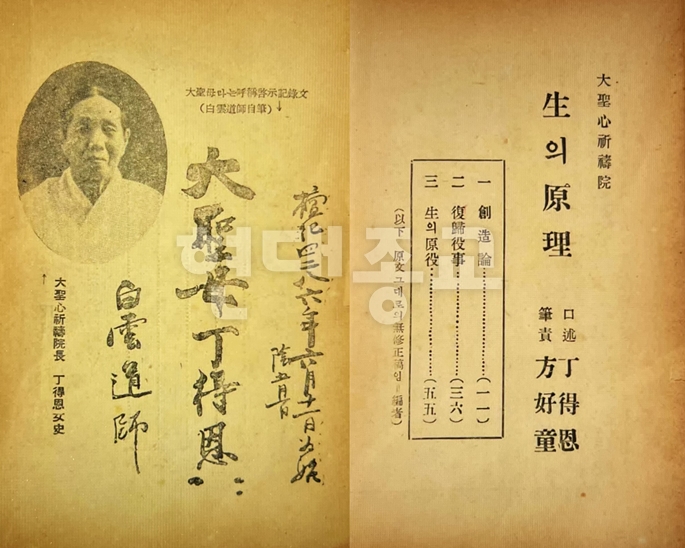 大聖母라는呼稱啓示記錄文
(白雲道師自筆)↓
檀紀四二八六年六月
大聖母丁得恩
白雲道師
大聖心祈禱院長 丁得恩女史
大聖心祈禱院
生의原理
口述 丁得恩
筆責 方好童
一 創造論……………………(一一)
二 復歸役事…………………(三六)
三 生의原役…………………(五五)
(以下 原文그대로의無修正稿임—編者)
현대종교